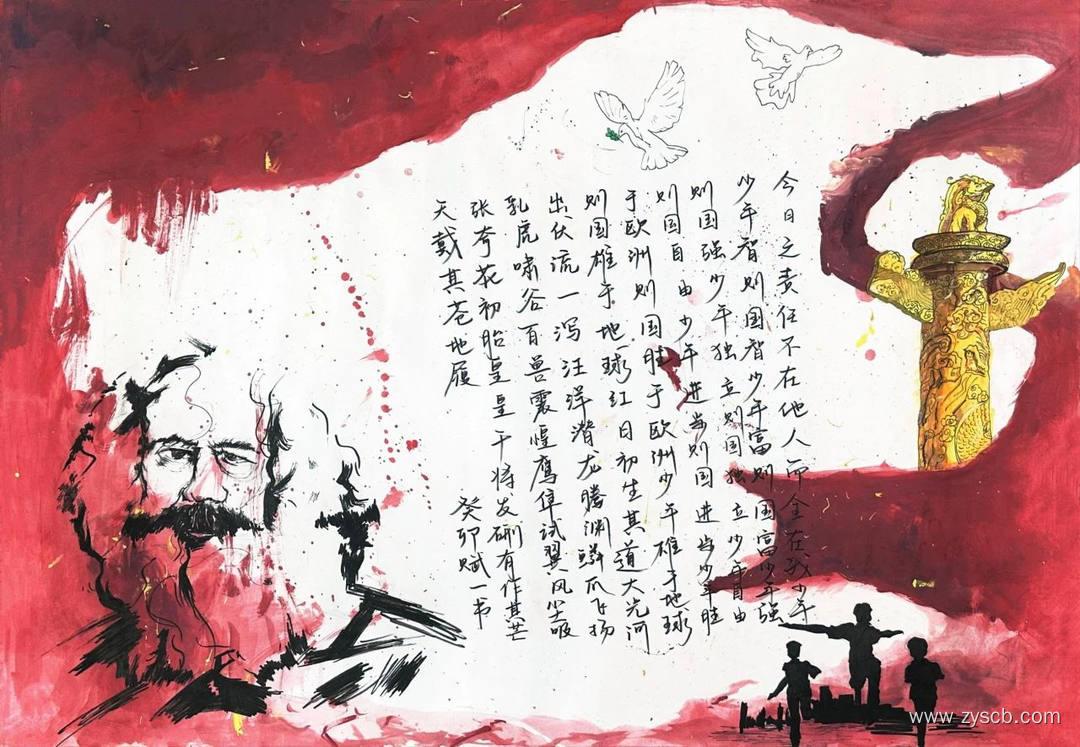 今日之责任不在他人而全在我少年
少年智则国智少年富则国富少年强
则国强少年独立则国独立少年自由
则国自由少年进步则国进步少年胜
于欧洲则国胜于欧洲少年雄于地球
则国雄于地球红日初生其道大光河
出伏流一泻汪洋潜龙腾渊鳞爪飞扬
乳虎啸谷百兽震惶鹰隼试翼风尘吸
张奇花初胎皇皇干将发硎有作其芒
天戴其苍地履
癸卯赋一书
www.zyscb.com